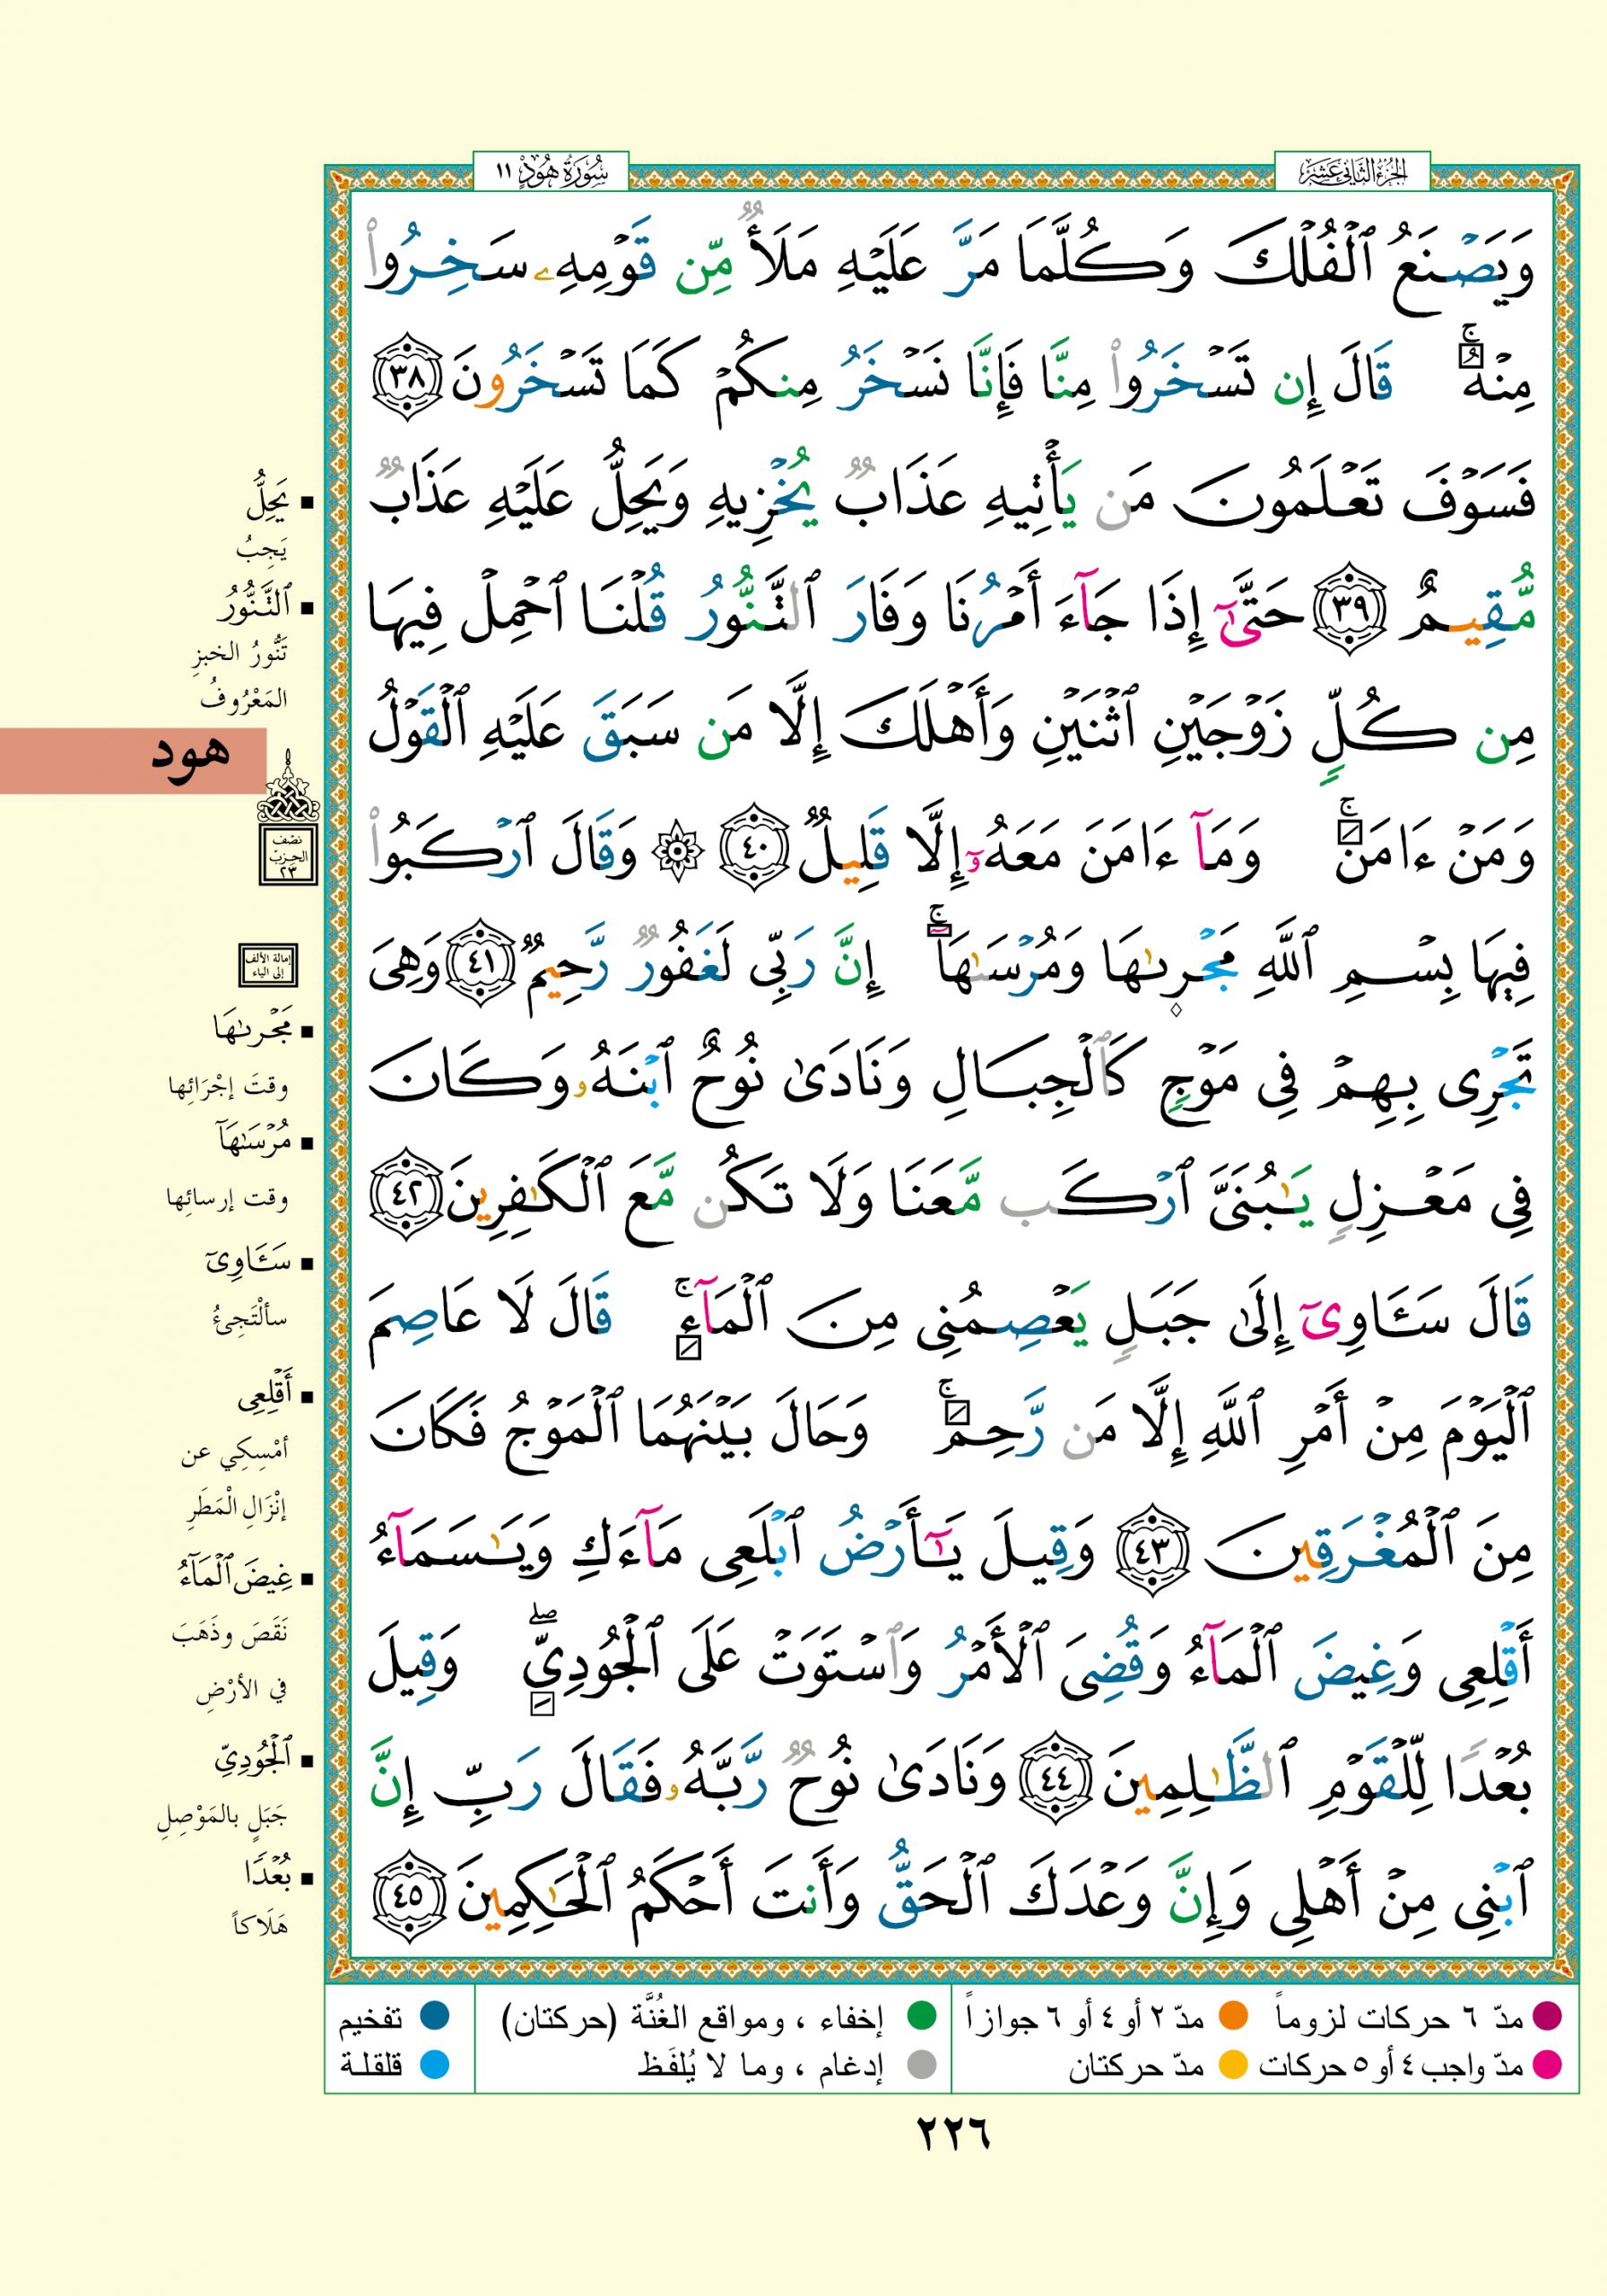 الجزء الثاني عشر
سُورَةُ هُودٍ ١١
وَيَصْنَعُ ٱلْفُلْكَ وَكُلَّمَا مَرَّ عَلَيْهِ مَلَأٌ مِّن قَوْمِهِۦ سَخِرُوا۟
مِنْهُ ۚ قَالَ إِن تَسْخَرُوا۟ مِنَّا فَإِنَّا نَسْخَرُ مِنكُمْ كَمَا تَسْخَرُونَ ٣٨
فَسَوْفَ تَعْلَمُونَ مَن يَأْتِيهِ عَذَابٌ يُخْزِيهِ وَيَحِلُّ عَلَيْهِ عَذَابٌ
مُّقِيمٌ ٣٩ حَتَّىٰٓ إِذَا جَآءَ أَمْرُنَا وَفَارَ ٱلتَّنُّورُ قُلْنَا ٱحْمِلْ فِيهَا
مِن كُلٍّ زَوْجَيْنِ ٱثْنَيْنِ وَأَهْلَكَ إِلَّا مَن سَبَقَ عَلَيْهِ ٱلْقَوْلُ
وَمَنْ ءَامَنَ ۚ وَمَآ ءَامَنَ مَعَهُۥٓ إِلَّا قَلِيلٌ ٤٠ ۞ وَقَالَ ٱرْكَبُوا۟
فِيهَا بِسْمِ ٱللَّهِ مَجْر۪ىٰهَا وَمُرْسَىٰهَآ ۚ إِنَّ رَبِّى لَغَفُورٌ رَّحِيمٌ ٤١ وَهِىَ
تَجْرِى بِهِمْ فِى مَوْجٍ كَٱلْجِبَالِ وَنَادَىٰ نُوحٌ ٱبْنَهُۥ وَكَانَ
فِى مَعْزِلٍ يَٰبُنَىَّ ٱرْكَب مَّعَنَا وَلَا تَكُن مَّعَ ٱلْكَٰفِرِينَ ٤٢
قَالَ سَـَٔاوِىٓ إِلَىٰ جَبَلٍ يَعْصِمُنِى مِنَ ٱلْمَآءِ ۚ قَالَ لَا عَاصِمَ
ٱلْيَوْمَ مِنْ أَمْرِ ٱللَّهِ إِلَّا مَن رَّحِمَ ۚ وَحَالَ بَيْنَهُمَا ٱلْمَوْجُ فَكَانَ
مِنَ ٱلْمُغْرَقِينَ ٤٣ وَقِيلَ يَٰٓأَرْضُ ٱبْلَعِى مَآءَكِ وَيَٰسَمَآءُ
أَقْلِعِى وَغِيضَ ٱلْمَآءُ وَقُضِىَ ٱلْأَمْرُ وَٱسْتَوَتْ عَلَى ٱلْجُودِىِّ ۖ وَقِيلَ
بُعْدًا لِّلْقَوْمِ ٱلظَّٰلِمِينَ ٤٤ وَنَادَىٰ نُوحٌ رَّبَّهُۥ فَقَالَ رَبِّ إِنَّ
ٱبْنِى مِنْ أَهْلِى وَإِنَّ وَعْدَكَ ٱلْحَقُّ وَأَنتَ أَحْكَمُ ٱلْحَٰكِمِينَ ٤٥
يَحِلُّ
يَجِبُ
ٱلتَّنُّورُ
تَنُّورُ الخبزِ
المَعْرُوفُ
هود
نصف
الحزب
٢٣
إمالة الألف
إلى الياء
مَجْر۪ىٰهَا
وقتَ إجْرَائِها
مُرْسَىٰهَآ
وقت إرسائِها
سَـَٔاوِىٓ
سألْتَجِئُ
أَقْلِعِى
أمْسِكِي عن
إنْزَالِ الْمَطَرِ
غِيضَ ٱلْمَآءُ
نَقَصَ وذَهَبَ
في الأرْضِ
ٱلْجُودِىِّ
جَبَلٍ بالمَوْصِلِ
بُعْدًا
هَلَاكاً
مدّ ٦ حركات لزوماً مدّ ٢ أو ٤ أو ٦ جوازاً
مدّ واجب ٤ أو ٥ حركات مدّ حركتان
إخفاء ، ومواقع الغُنَّة (حركتان)
إدغام ، وما لا يُلفَظ
تفخيم
قلقلة
٢٢٦